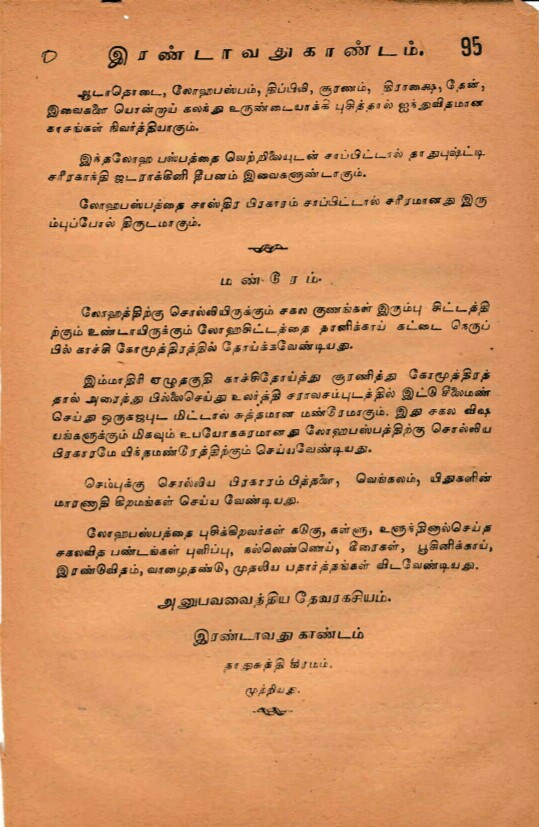 இரண்டாவதுகாண்டம். 95
ஆடாதொடை, லோஹபஸ்பம், திப்பிலி, சூரணம், திராக்ஷை, தேன்,
இவைகளை யொன்றாய் கலக்து உருண்டையாக்கி புசித்தால் ஐந்துவிதமான
காசங்கள் நிவர்த்தியாகும்.
இந்தலோஹ பஸ்பத்தை வெற்றிலையுடன் சாப்பிட்டால் தாதுபுஷ்ட்டி
சரீரகாந்தி ஜடராக்கினி தீபனம் இவைகளுண்டாகும்.
லோஹபஸ்பத்தை சாஸ்திர பிரகாரம் சாப்பிட்டால் சரீரமானது இரு
ம்புப்போல் திருடமாகும்.
மண்டூரம்.
லோஹத்திற்கு சொல்லியிருக்கும் சகல குணங்கள் இரும்பு கிட்டத்தி
ற்கும் உண்டாயிருக்கும் லோஹகிட்டத்தை தானிக்காய் கட்டை நெருப்
பில் காச்சி கோமூத்திரத்தில் தோய்க்கவேண்டியது.
இம்மாதிரி ஏழுதகுதி காச்சிதோய்த்து சூரணித்து கோமூத்திரத்
தால் அரைத்து பில்லைசெய்து உலர்த்தி சராவசம்புடத்தில் இட்டு சீலைமண்
செய்து ஒருகஜபுட மிட்டால் சுத்தமான மண்டூரமாகும். இது சகல விஷ
யங்களுக்கும் மிகவும் உபயோககரமானது லோஹபஸ்பத்திற்கு சொல்லிய
பிரகாரமே யிந்தமண்டூரத்திற்கும் செய்யவேண்டியது.
செம்புக்கு சொல்லிய பிரகாரம்பித்தளை, வெங்கலம், யிதுகளின்
மாரணாதி கிறமங்கள் செய்ய வேண்டியது.
லோஹபஸ்பத்தை புசிக்கிறவர்கள் கடுகு, கள்ளு, உளுந்தினால்செய்த
சகலவித பண்டங்கள் புளிப்பு, நல்லெண்ணெய், கீரைகள், பூசினிக்காய்,
இரண்டுவிதம், வாழைதண்டு, முதலிய பதார்த்தங்கள் விடவேண்டியது.
அனுபவவைத்திய தேவரகசியம்.
இரண்டாவது காண்டம்
தாதுசுத்தி கிரமம்.
முற்றியது.